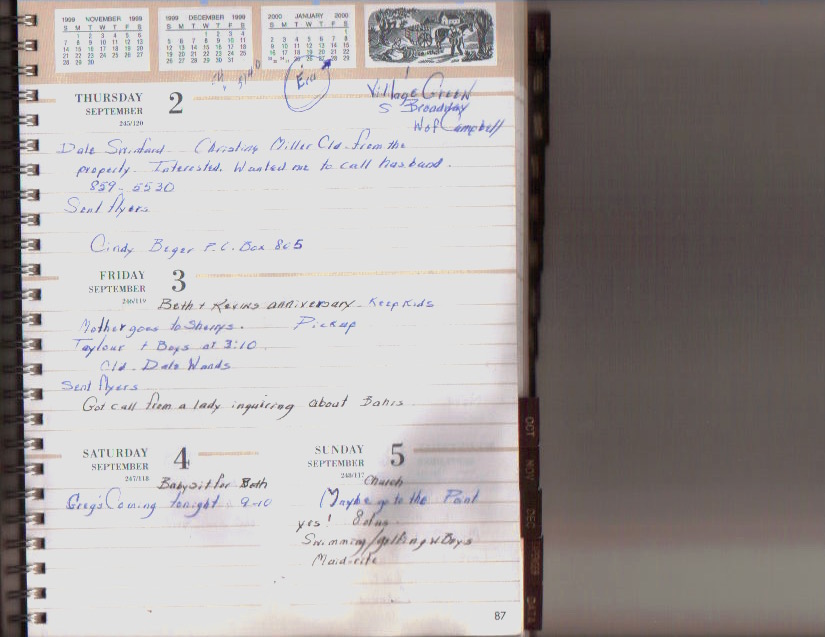 1999 NOVEMBER 1999
S M T W T F S
1 2 3 4 5 6
7 8 9 10 11 12 13
14 15 16 17 18 19 20
21 22 23 24 25 26 27
28 29 30
1999 DECEMBER 1999
S M T W T F S
1 2 3 4
5 6 7 8 9 10 11
12 13 14 15 16 17 18
19 20 21 22 23 24 25
26 27 28 29 30 31
2000 JANUARY 2000
S M T W T F S
1
2 3 4 5 6 7 8
9 10 11 12 13 14 15
16 17 18 19 20 21 22
23 24 25 26 27 28 29
Village Green
S Broadway
W of Campbell
THURSDAY 2
SEPTEMBER
245/120
Dale Christina Miller Cld from the
property. Interested. Wanted me to call husband.
859-5530
Sent flyers
Cindy Beger P.O. Box 805
FRIDAY 3
SEPTEMBER
246/119
Beth + Kevins anniversary - Keep Kids
Mother goes to Sherrys. Pickup
Taylour + Boys at 3:10
Cld. Dale Wands
Sent flyers
Got call from a lady inquiring about
SATURDAY 4
SEPTEMBER
247/118
Babysit for Beth
Greg's Coming tonight 9-10
SUNDAY 5
SEPTEMBER
248/117
Church
Maybe go to the Point
yes! 8 of us.
Swimming/golfing w Boys
Maid-rite
87
OCT
NOV
DEC
DATA